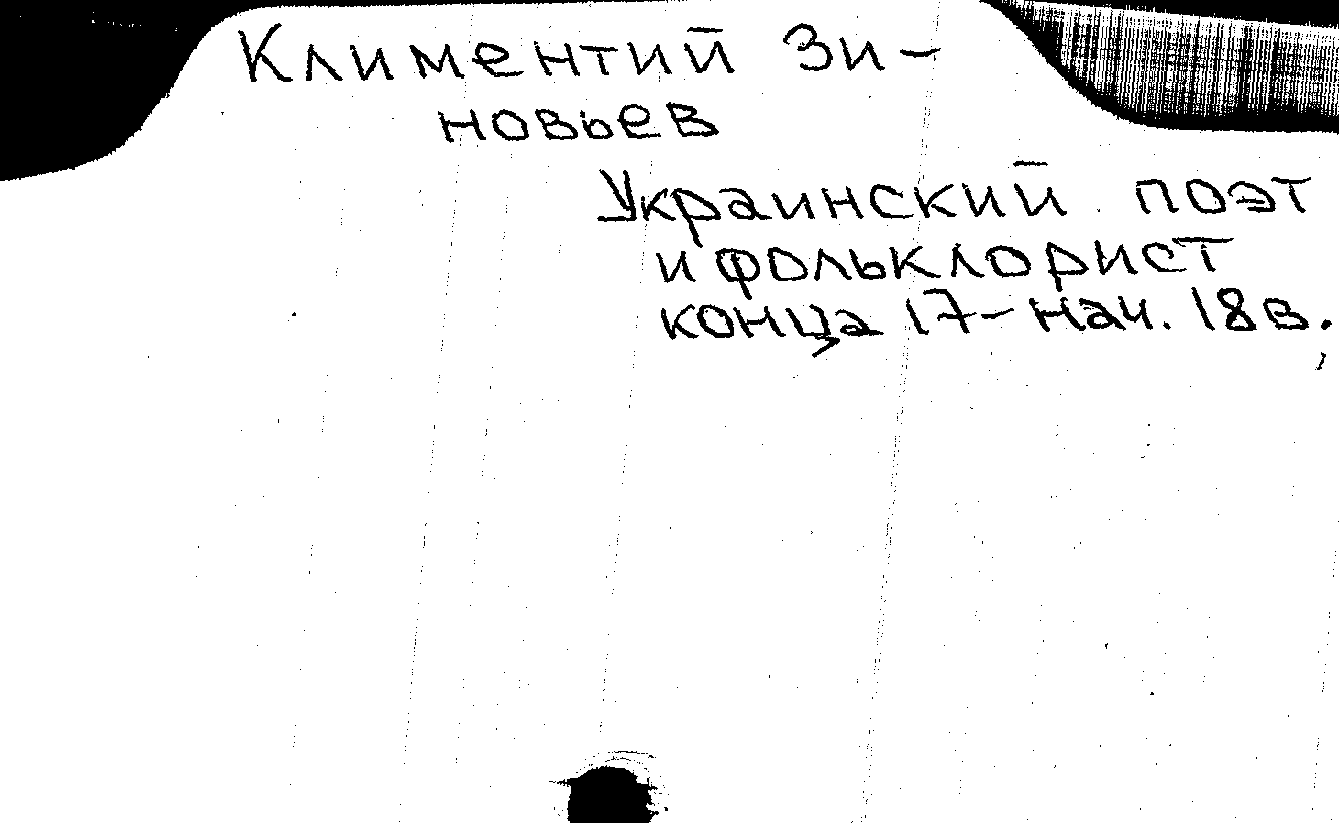 Климентий Зи-
новьев
Украинский поэт
и фольклорист
конца 17-нач. 18 в.